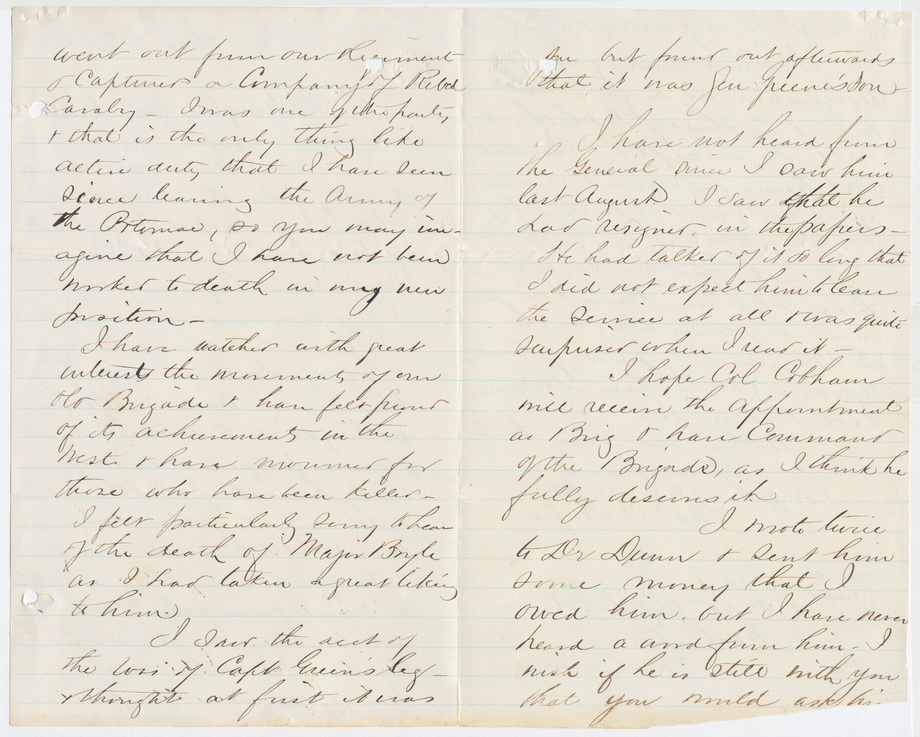 went out from our Regiment
& Captured a Company of Rebel
Cavalry - I was one of the party,
& that is the only thing like
active duty that I have seen
since leaving the Army of
the Potomac, so you may im-
agine that I have not been
worked to death in my new
position -
I have watched with great
interest the movements of our
old Brigade & have felt proud
of its achievements in the
West & have mourned for
those who have been killed -
I felt particularly sorry to hear
of the death of Major Boyle
as I had taken a great liking
to him.
I saw the acct of
the loss of Capt Green's leg -
& thought at first it was
but found out afterwards
that it was Gen Greene's son -
I have not heard from
the General since I saw him
last August I saw that he
had resigned in the papers -
He had talked of it so long that
I did not expect him to leave
the service at all & was quite
surprised when I read it -
I hope Col Cobham
will receive the appointment
as Brig & have Command
of the Brigade, as I think he
fully deserves it
I wrote twice
to Dr Dunn & sent him
some money that I
owed him, but I have never
heard a word from him - I
wish if he is still with you
that you would ask